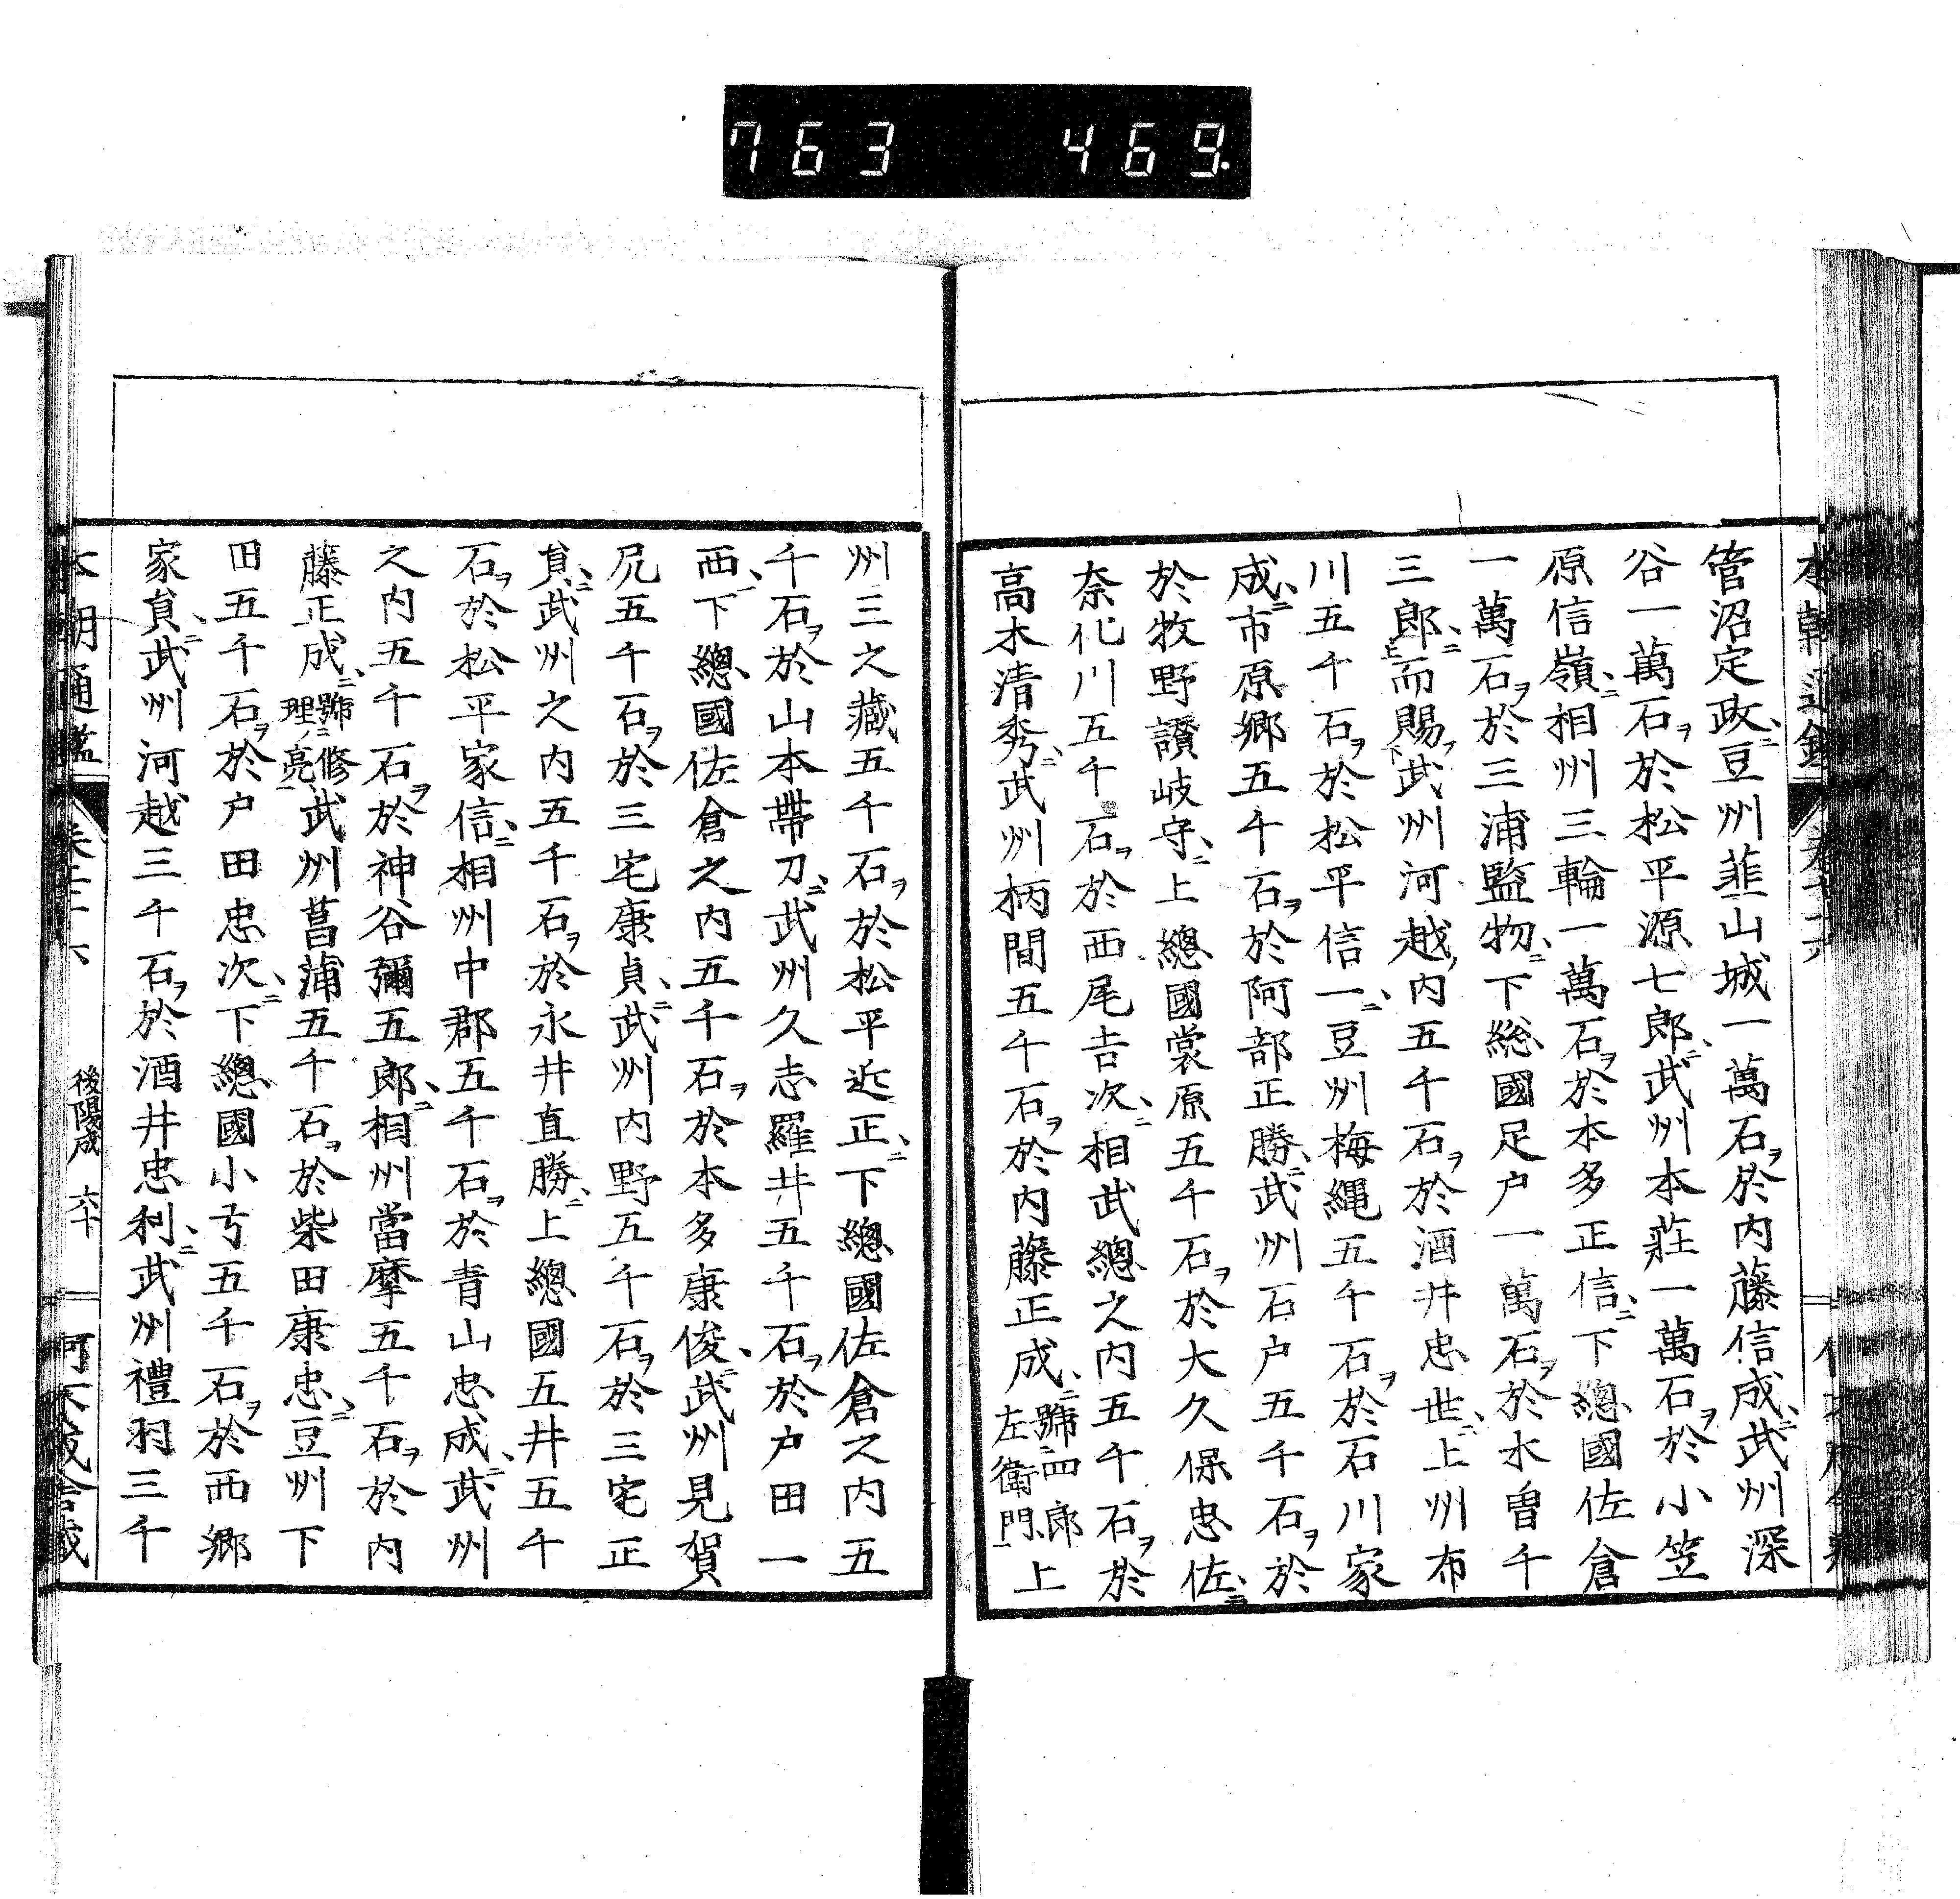 763 469
管沼定政豆州韮山城一萬石ヲ於内藤信成武州深
谷一萬石ヲ於松平源七郎武州本莊一萬石ヲ於小笠
原信嶺相州三輪一萬石ヲ於本多正信下總國佐倉
一萬石ヲ於三浦監物下総國足戸一萬石ヲ於木曽千
三郎而賜武州河越内五千石ヲ於酒井忠世上州布
川五千石ヲ於松平信一豆州梅縄五千石ヲ於石川家
成市原郷五千石ヲ於阿部正勝武州石戸五千石ヲ於
於牧野讃岐守上總國裳原五千石ヲ於大久保忠佐
奈化川五千石ヲ於西尾吉次相武總之内五千石ヲ於
高木清秀武州柄間五千石ヲ於内藤正成號四郎左衛門上
州三之藏五千石ヲ於松平近正下總國佐倉之内五
千石ヲ於山本帶刀武州久志羅井五千石ヲ於戸田一
西下總國佐倉之内五千石ヲ於本多康俊武州見賀
尻五千石ヲ於三宅康貞武州内野五千石ヲ於三宅正
貟武州之内五千石ヲ於永井直勝上總國五井五千
石ヲ於松平家信相州中郡五千石ヲ於青山忠成武州
之内五千石ヲ於神谷彌五郎相州當摩五千石ヲ於内
藤正成號修理亮武州菖蒲五千石ヲ於柴田康忠豆州下
田五千石ヲ於戸田忠次下總國小弓五千石ヲ於西郷
家貟武州河越三千石ヲ於酒井忠利武州禮羽三千
本朝通鑑
後陽成 六十